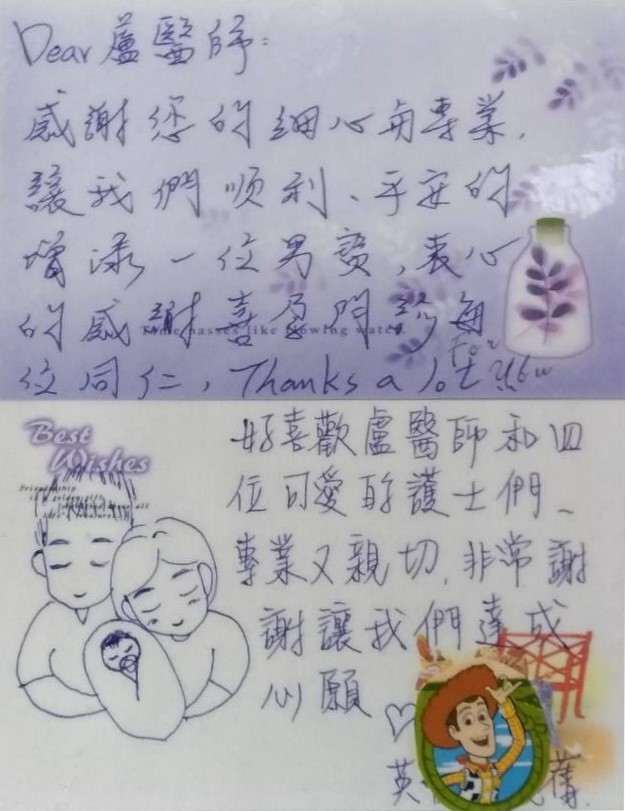 Dear 蘆醫師:
感謝您的細心與專業,
讓我們順利、平安的
增添一位男寶,衷心
的感謝喜孕門診每
位同仁, Thanks a lot
Time passes like flowing water
For You
Best
Wishes
好喜歡盧醫師和四
位可愛的護士們、
專業又親切,非常謝
謝讓我們達成
心願
英